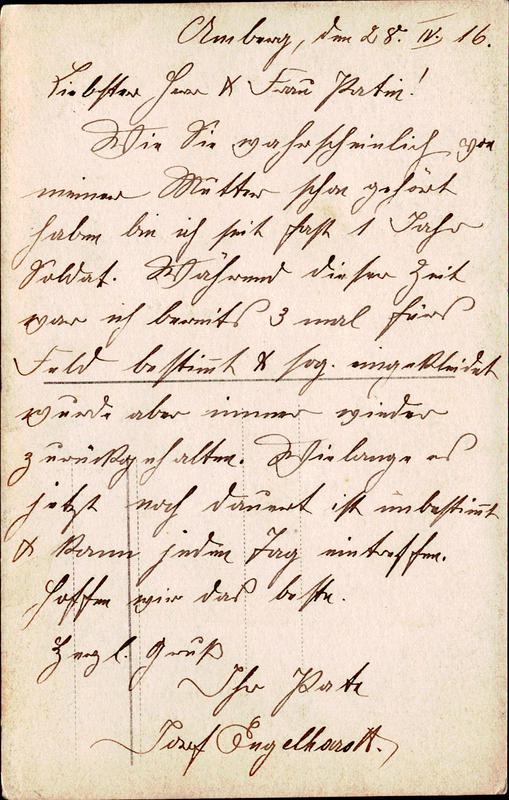 Amberg, den 28. IV. 16.
Liebster Herr & Frau Patin!
Wie Sie wahrscheinlich von
meiner Mutter schon gehört
haben bin ich seit fast 1 Jahr
Soldat. Während dieser Zeit
war ich bereits 3 mal fürs
Feld bestimmt & sog. eingekleidet
wurde aber immer wieder
zurückgehalten. Wielange es
jetzt noch dauert ist unbestimmt
& kann jeden Tag eintreffen.
Hoffen wir das beste.
Herzl. Gruß
Ihr Pate
Josef Engelhardt.